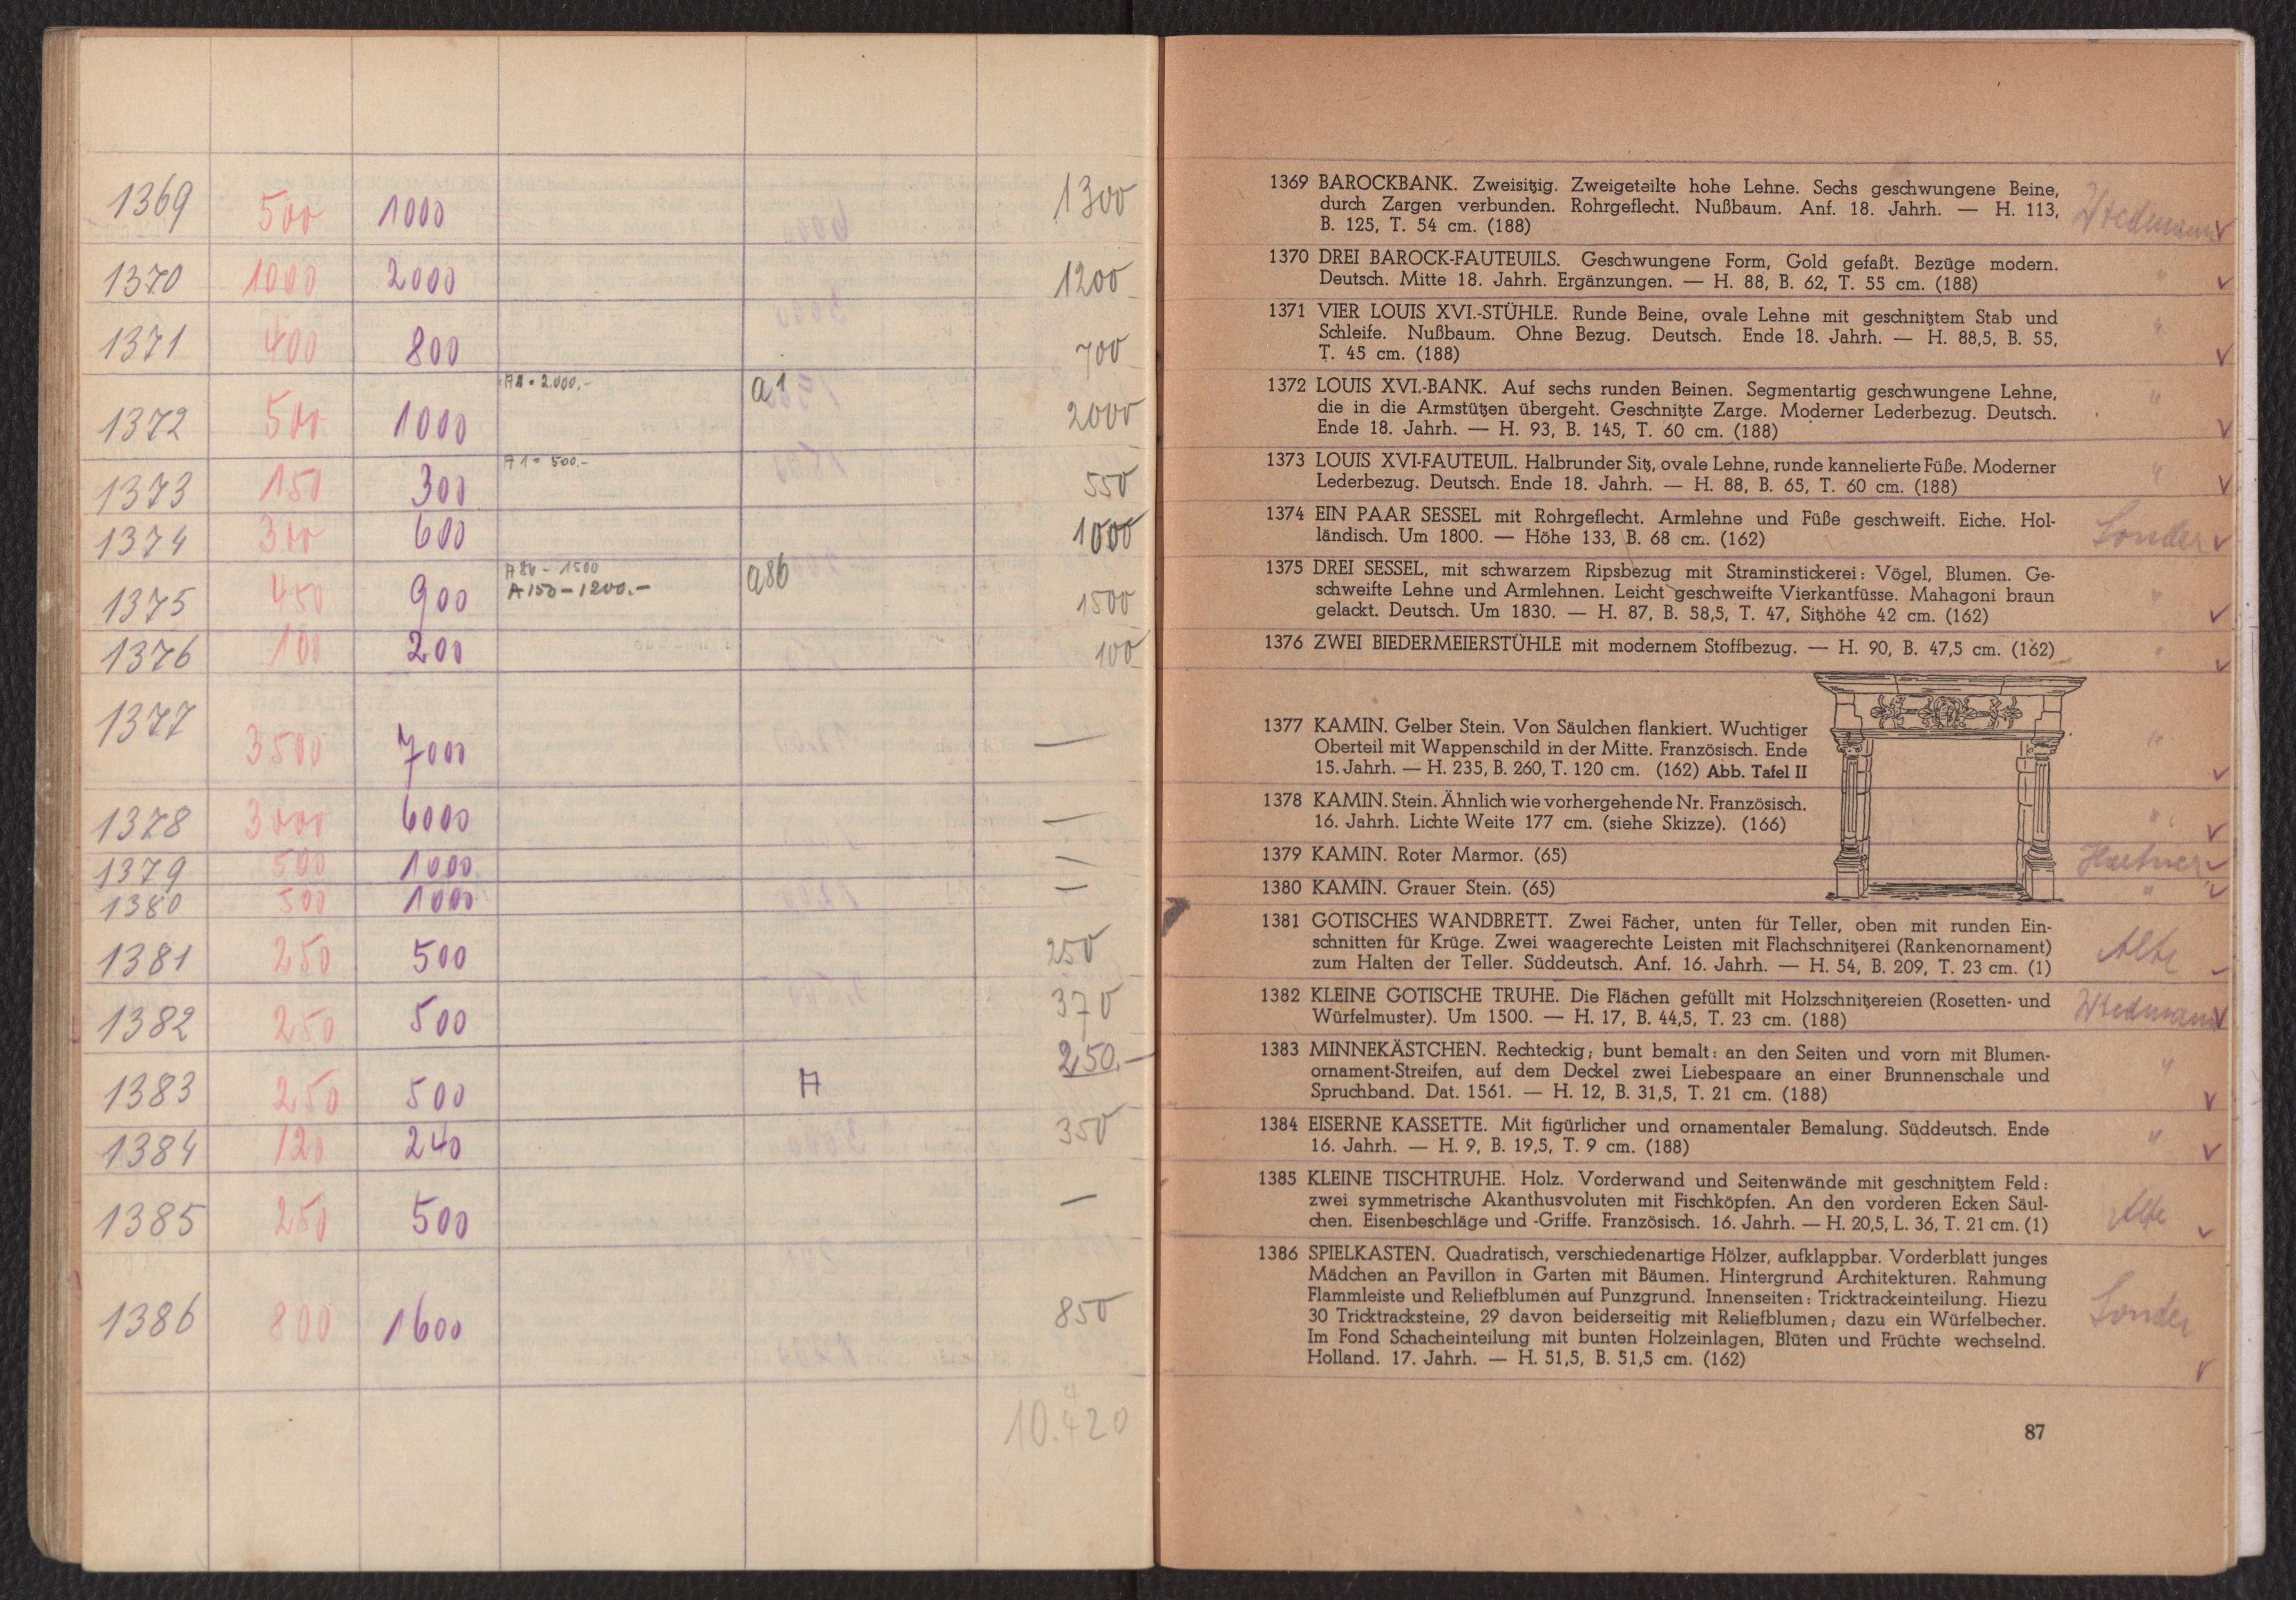 1369 500 1000 1300
1370 1000 2000 1200
1371 400 800 700
1372 500 1000 A1 = 2.000,- a1 2000
1373 150 300 A1 = 500.- 550
1374 300 600 1000
1375 450 900 A86 - 1500 a86 1500
A150 - 1200.-
1376 100 200 100
1377 3500 7000 —
1378 3000 6000 —
1379 500 1000 —
1380 500 1000 —
1381 250 500 250
1382 250 500 370
1383 250 500 A 250.-
1384 120 240 350
1385 250 500 —
1386 800 1600 850
10.420
4
1369 BAROCKBANK. Zweisitzig. Zweigeteilte hohe Lehne. Sechs geschwungene Beine,
durch Zargen verbunden. Rohrgeflecht. Nußbaum. Anf. 18. Jahrh. — H. 113,
B. 125, T. 54 cm. (188)
1370 DREI BAROCK-FAUTEUILS. Geschwungene Form, Gold gefaßt. Bezüge modern.
Deutsch. Mitte 18. Jahrh. Ergänzungen. — H. 88, B. 62, T. 55 cm. (188) "
1371 VIER LOUIS XVI.-STÜHLE. Runde Beine, ovale Lehne mit geschnitztem Stab und
Schleife. Nußbaum. Ohne Bezug. Deutsch. Ende 18. Jahrh. — H. 88,5, B. 55, "
T. 45 cm. (188)
1372 LOUIS XVI.-BANK. Auf sechs runden Beinen. Segmentartig geschwungene Lehne,
die in die Armstützen übergeht. Geschnitzte Zarge. Moderner Lederbezug. Deutsch. "
Ende 18. Jahrh. — H. 93, B. 145, T. 60 cm. (188)
1373 LOUIS XVI-FAUTEUIL. Halbrunder Sitz, ovale Lehne, runde kannelierte Füße. Moderner
Lederbezug. Deutsch. Ende 18. Jahrh. — H. 88, B. 65, T. 60 cm. (188) "
1374 EIN PAAR SESSEL mit Rohrgeflecht. Armlehne und Füße geschweift. Eiche. Hol-
ländisch. Um 1800. — Höhe 133, B. 68 cm. (162) Sonder
1375 DREI SESSEL, mit schwarzem Ripsbezug mit Straminstickerei: Vögel, Blumen. Ge-
schweifte Lehne und Armlehnen. Leicht geschweifte Vierkantfüsse. Mahagoni braun "
gelackt. Deutsch. Um 1830. — H. 87, B. 58,5, T. 47, Sitzhöhe 42 cm. (162)
1376 ZWEI BIEDERMEIERSTÜHLE mit modernem Stoffbezug. — H. 90, B. 47,5 cm. (162) "
1377 KAMIN. Gelber Stein. Von Säulchen flankiert. Wuchtiger
Oberteil mit Wappenschild in der Mitte. Französisch. Ende "
15. Jahrh. — H. 235, B. 260, T. 120 cm. (162) Abb. Tafel II
1378 KAMIN. Stein. Ähnlich wie vorhergehende Nr. Französisch.
16. Jahrh. Lichte Weite 177 cm. (siehe Skizze). (166) "
1379 KAMIN. Roter Marmor. (65)
1380 KAMIN. Grauer Stein. (65) "
1381 GOTISCHES WANDBRETT. Zwei Fächer, unten für Teller, oben mit runden Ein-
schnitten für Krüge. Zwei waagerechte Leisten mit Flachschnitzerei (Rankenornament) Alte
zum Halten der Teller. Süddeutsch. Anf. 16. Jahrh. — H. 54, B. 209, T. 23 cm. (1)
1382 KLEINE GOTISCHE TRUHE. Die Flächen gefüllt mit Holzschnitzereien (Rosetten- und
Würfelmuster). Um 1500. — H. 17, B. 44,5, T. 23 cm. (188)
1383 MINNEKÄSTCHEN. Rechteckig; bunt bemalt: an den Seiten und vorn mit Blumen-
ornament-Streifen, auf dem Deckel zwei Liebespaare an einer Brunnenschale und "
Spruchband. Dat. 1561. — H. 12, B. 31,5, T. 21 cm. (188)
1384 EISERNE KASSETTE. Mit figürlicher und ornamentaler Bemalung. Süddeutsch. Ende
16. Jahrh. — H. 9, B. 19,5, T. 9 cm. (188) "
1385 KLEINE TISCHTRUHE. Holz. Vorderwand und Seitenwände mit geschnitztem Feld:
zwei symmetrische Akanthusvoluten mit Fischköpfen. An den vorderen Ecken Säul- Alte
chen. Eisenbeschläge und -Griffe. Französisch. 16. Jahrh. — H. 20,5, L. 36, T. 21 cm. (1)
1386 SPIELKASTEN. Quadratisch, verschiedenartige Hölzer, aufklappbar. Vorderblatt junges
Mädchen an Pavillon in Garten mit Bäumen. Hintergrund Architekturen. Rahmung
Flammleiste und Reliefblumen auf Punzgrund. Innenseiten: Tricktrackeinteilung. Hiezu
30 Tricktracksteine, 29 davon beiderseitig mit Reliefblumen; dazu ein Würfelbecher. Sonder
Im Fond Schacheinteilung mit bunten Holzeinlagen, Blüten und Früchte wechselnd.
Holland. 17. Jahrh. — H. 51,5, B. 51,5 cm. (162)
87